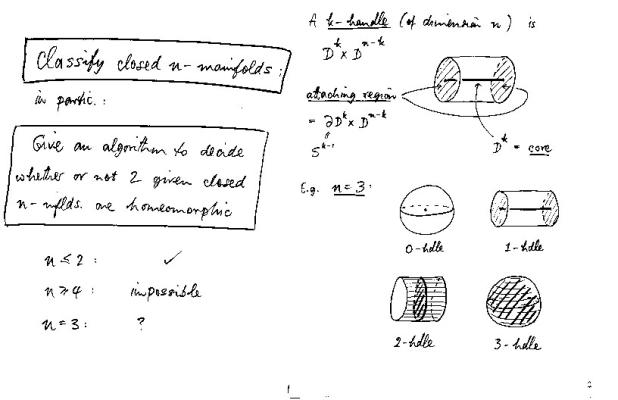 Classify closed n-manifolds:
in partic.:
Give an algorithm to decide
whether or not 2 given closed
n-mflds. are homeomorphic
n ≤ 2: ✓
n ≥ 4: impossible
n = 3: ?
1
A k-handle (of dimension n) is
D^k × D^{n-k}
attaching region
= ∂D^k × D^{n-k}
S^{k-1}
D^k = core
E.g. n = 3:
0-hdle 1-hdle
2-hdle 3-hdle
2